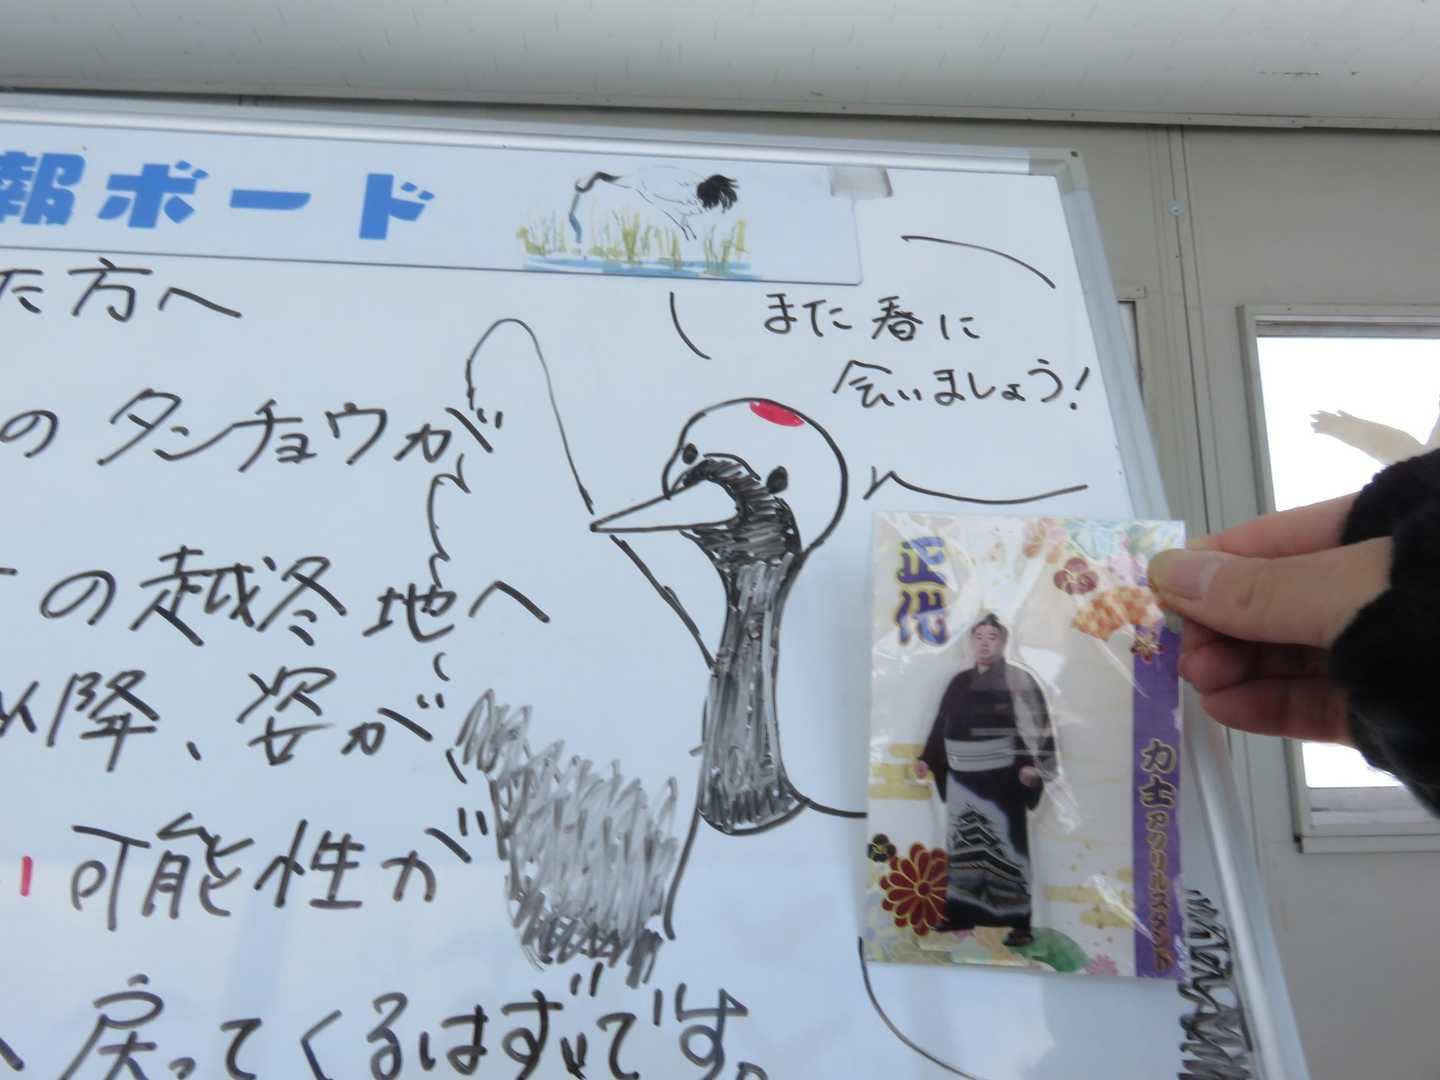 報ボード
た方へ
また春に
会いましょう!
のタンチョウが
の越冬地へ
以降、姿が
可能性が
戻ってくるはずです。
正代
力士アクリルスタンド